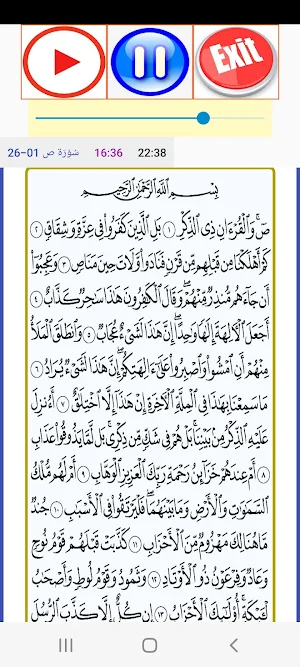 Exit
سورة ص 01-26 16:36 22:38
بِسْمِ اللَّهِ الرَّحْمَٰنِ الرَّحِيمِ
صٓ ۚ وَالْقُرْءَانِ ذِي الذِّكْرِ ١ بَلِ الَّذِينَ كَفَرُوا فِي عِزَّةٍ وَشِقَاقٍ ٢
كَمْ أَهْلَكْنَا مِن قَبْلِهِم مِّن قَرْنٍ فَنَادَوا وَّلَاتَ حِينَ مَنَاصٍ ٣ وَعَجِبُوا
أَن جَاءَهُم مُّنذِرٌ مِّنْهُمْ ۖ وَقَالَ الْكَٰفِرُونَ هَٰذَا سَٰحِرٌ كَذَّابٌ ٤
أَجَعَلَ الْءَالِهَةَ إِلَٰهًا وَٰحِدًا ۖ إِنَّ هَٰذَا لَشَيْءٌ عُجَابٌ ٥ وَانطَلَقَ الْمَلَأُ
مِنْهُمْ أَنِ امْشُوا وَاصْبِرُوا عَلَىٰ ءَالِهَتِكُمْ ۖ إِنَّ هَٰذَا لَشَيْءٌ يُرَادُ ٦
مَا سَمِعْنَا بِهَٰذَا فِي الْمِلَّةِ الْءَاخِرَةِ إِنْ هَٰذَا إِلَّا اخْتِلَٰقٌ ٧ أَءُنزِلَ
عَلَيْهِ الذِّكْرُ مِن بَيْنِنَا ۚ بَلْ هُمْ فِي شَكٍّ مِّن ذِكْرِي ۖ بَل لَّمَّا يَذُوقُوا عَذَابِ
٨ أَمْ عِندَهُمْ خَزَائِنُ رَحْمَةِ رَبِّكَ الْعَزِيزِ الْوَهَّابِ ٩ أَمْ لَهُم مُّلْكُ
السَّمَٰوَٰتِ وَالْأَرْضِ وَمَا بَيْنَهُمَا ۖ فَلْيَرْتَقُوا فِي الْأَسْبَٰبِ ١٠ جُندٌ
مَّا هُنَالِكَ مَهْزُومٌ مِّنَ الْأَحْزَابِ ١١ كَذَّبَتْ قَبْلَهُمْ قَوْمُ نُوحٍ
وَعَادٌ وَفِرْعَوْنُ ذُو الْأَوْتَادِ ١٢ وَثَمُودُ وَقَوْمُ لُوطٍ وَأَصْحَٰبُ
لْـَٔيْكَةِ ۚ أُولَٰئِكَ الْأَحْزَابُ ١٣ إِن كُلٌّ إِلَّا كَذَّبَ الرُّسُلَ